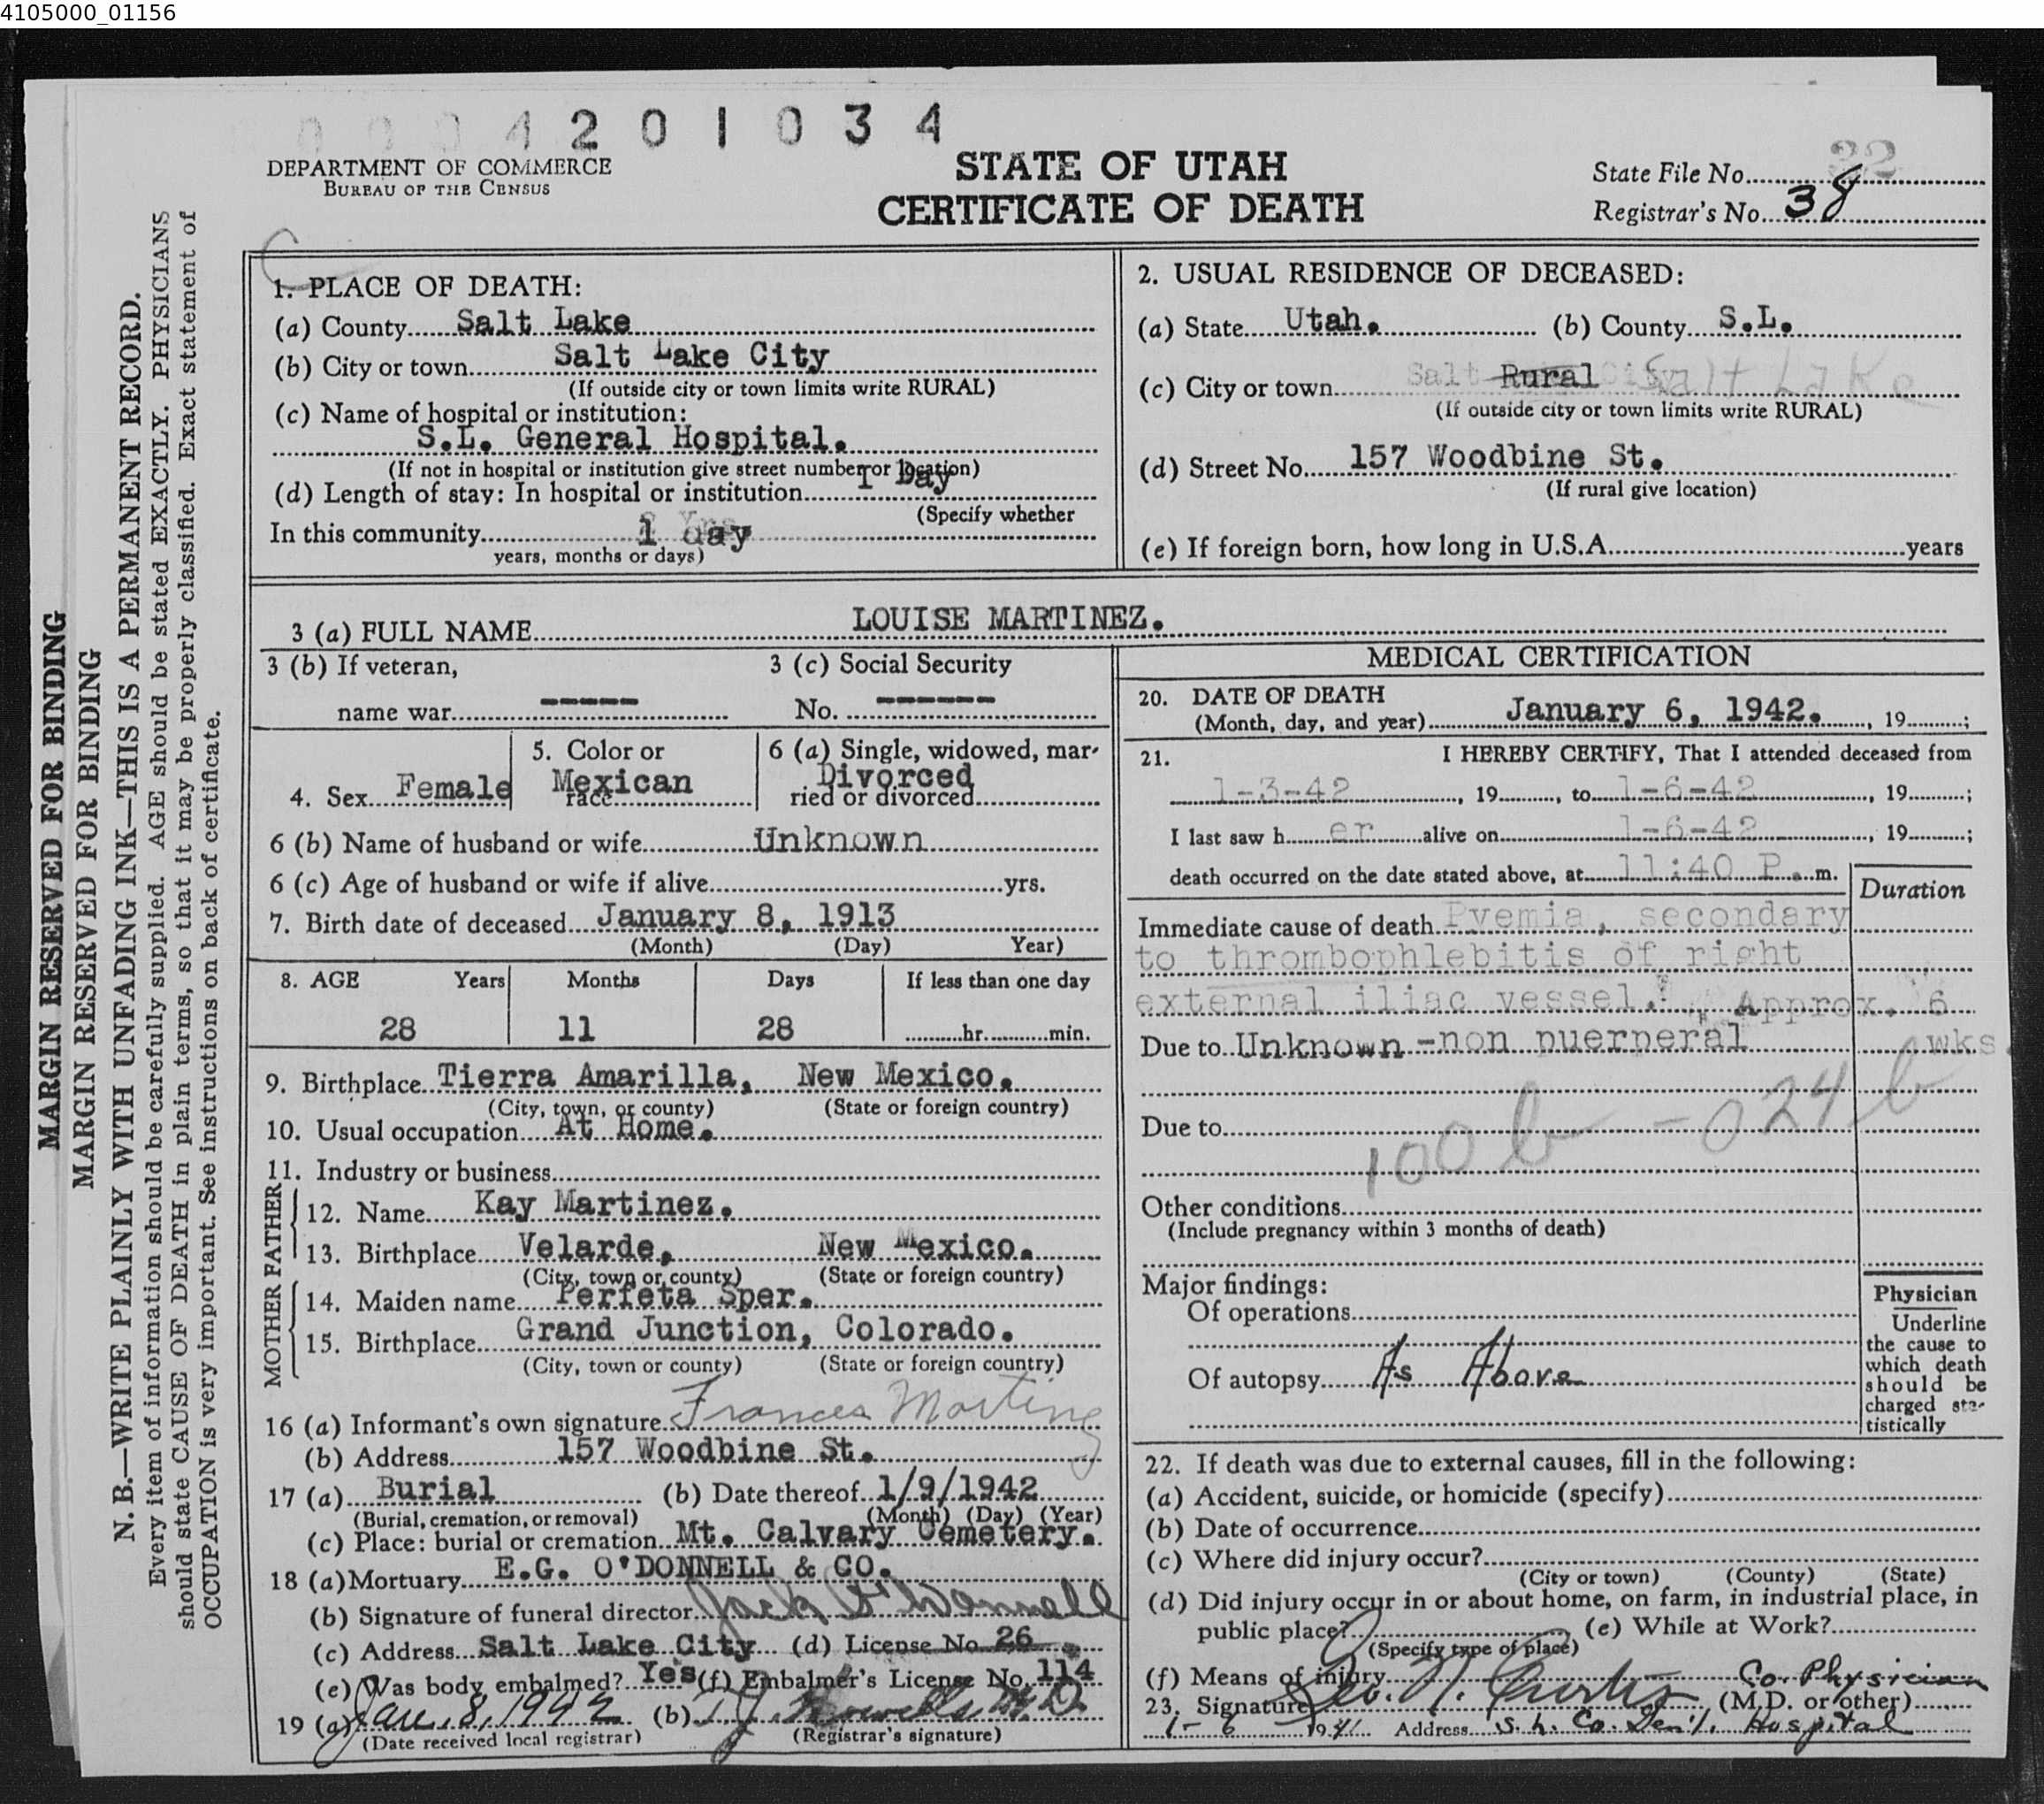 4105000_01156
4201034
DEPARTMENT OF COMMERCE
BUREAU OF THE CENSUS
STATE OF UTAH
CERTIFICATE OF DEATH
State File No. 32
Registrar's No. 38
MARGIN RESERVED FOR BINDING
MARGIN RESERVED FOR BINDING
N. B.—WRITE PLAINLY WITH UNFADING INK—THIS IS A PERMANENT RECORD.
Every item of information should be carefully supplied. AGE should be stated EXACTLY. PHYSICIANS
should state CAUSE OF DEATH in plain terms, so that it may be properly classified. Exact statement of
OCCUPATION is very important. See instructions on back of certificate.
1. PLACE OF DEATH:
(a) County Salt Lake
(b) City or town Salt Lake City
(If outside city or town limits write RURAL)
(c) Name of hospital or institution:
S.L. General Hospital.
(If not in hospital or institution give street number or location)
(d) Length of stay: In hospital or institution 1 Day
(Specify whether
In this community 1 day
years, months or days)
2. USUAL RESIDENCE OF DECEASED:
(a) State Utah. (b) County S.L.
(c) City or town Rural Salt Lake
(If outside city or town limits write RURAL)
(d) Street No. 157 Woodbine St.
(If rural give location)
(e) If foreign born, how long in U.S.A. years
3 (a) FULL NAME LOUISE MARTINEZ.
3 (b) If veteran,
name war -----
3 (c) Social Security
No. ------
4. Sex Female
5. Color or
race Mexican
6 (a) Single, widowed, mar-
ried or divorced Divorced
6 (b) Name of husband or wife Unknown
6 (c) Age of husband or wife if alive yrs.
7. Birth date of deceased January 8, 1913
(Month) (Day) Year)
8. AGE Years Months Days If less than one day
28 11 28 hr. min.
9. Birthplace Tierra Amarilla, New Mexico.
(City, town, or county) (State or foreign country)
10. Usual occupation At Home.
11. Industry or business
FATHER
12. Name Kay Martinez.
13. Birthplace Velarde, New Mexico.
(City, town or county) (State or foreign country)
MOTHER
14. Maiden name Perfeta Sper.
15. Birthplace Grand Junction, Colorado.
(City, town or county) (State or foreign country)
16 (a) Informant's own signature Frances Martinez
(b) Address 157 Woodbine St.
17 (a) Burial (b) Date thereof 1/9/1942
(Burial, cremation, or removal) (Month) (Day) (Year)
(c) Place: burial or cremation Mt. Calvary Cemetery.
18 (a) Mortuary E.G. O'DONNELL & CO.
(b) Signature of funeral director Jack O'Donnell
(c) Address Salt Lake City (d) License No. 26
(e) Was body embalmed? Yes (f) Embalmer's License No. 114
19 (a) Jan. 8, 1942 (b) M.D.
(Date received local registrar) (Registrar's signature)
MEDICAL CERTIFICATION
20. DATE OF DEATH
(Month, day, and year) January 6, 1942. , 19 ;
21. I HEREBY CERTIFY, That I attended deceased from
1-3-42 , 19 , to 1-6-42 , 19 ;
I last saw h er alive on 1-6-42 , 19 ;
death occurred on the date stated above, at 11:40 P. m.
Duration
Immediate cause of death Pyemia, secondary
to thrombophlebitis of right
external iliac vessel. Approx. 6
wks.
Due to Unknown -non puerperal
Due to
100 b - 024 b
Other conditions
(Include pregnancy within 3 months of death)
Major findings:
Of operations
Of autopsy As Above
Physician
Underline
the cause to
which death
should be
charged sta-
tistically
22. If death was due to external causes, fill in the following:
(a) Accident, suicide, or homicide (specify)
(b) Date of occurrence
(c) Where did injury occur?
(City or town) (County) (State)
(d) Did injury occur in or about home, on farm, in industrial place, in
public place? (e) While at Work?
(Specify type of place)
(f) Means of injury Co. Physician
23. Signature (M.D. or other)
1-6 1941 Address S. L. Co. Gen'l. Hospital